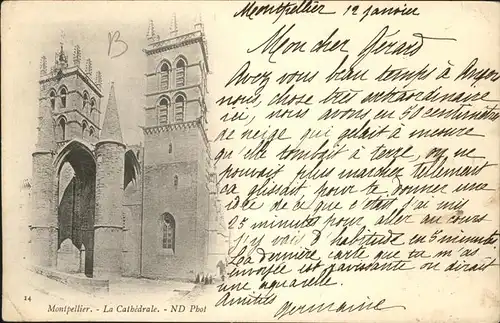 B
Montpellier 12 janvier
Mon cher Gérard
Avez vous beau temps à Angers
nous, chose très extraordinaire
ici, nous avons eu 50 centimètres
de neige qui gelait à mesure
qu'elle tombait à terre, on ne
pouvait plus marcher tellement
ça glissait pour te donner une
idée de ce que c'était j'ai mis
25 minutes pour aller au cours
J'y vais d'habitude en 5 minutes
La dernière carte que tu m'as
envoyée est ravissante on dirait
une aquarelle.
Amitiés
Germaine
14
Montpellier. - La Cathédrale. - ND Phot